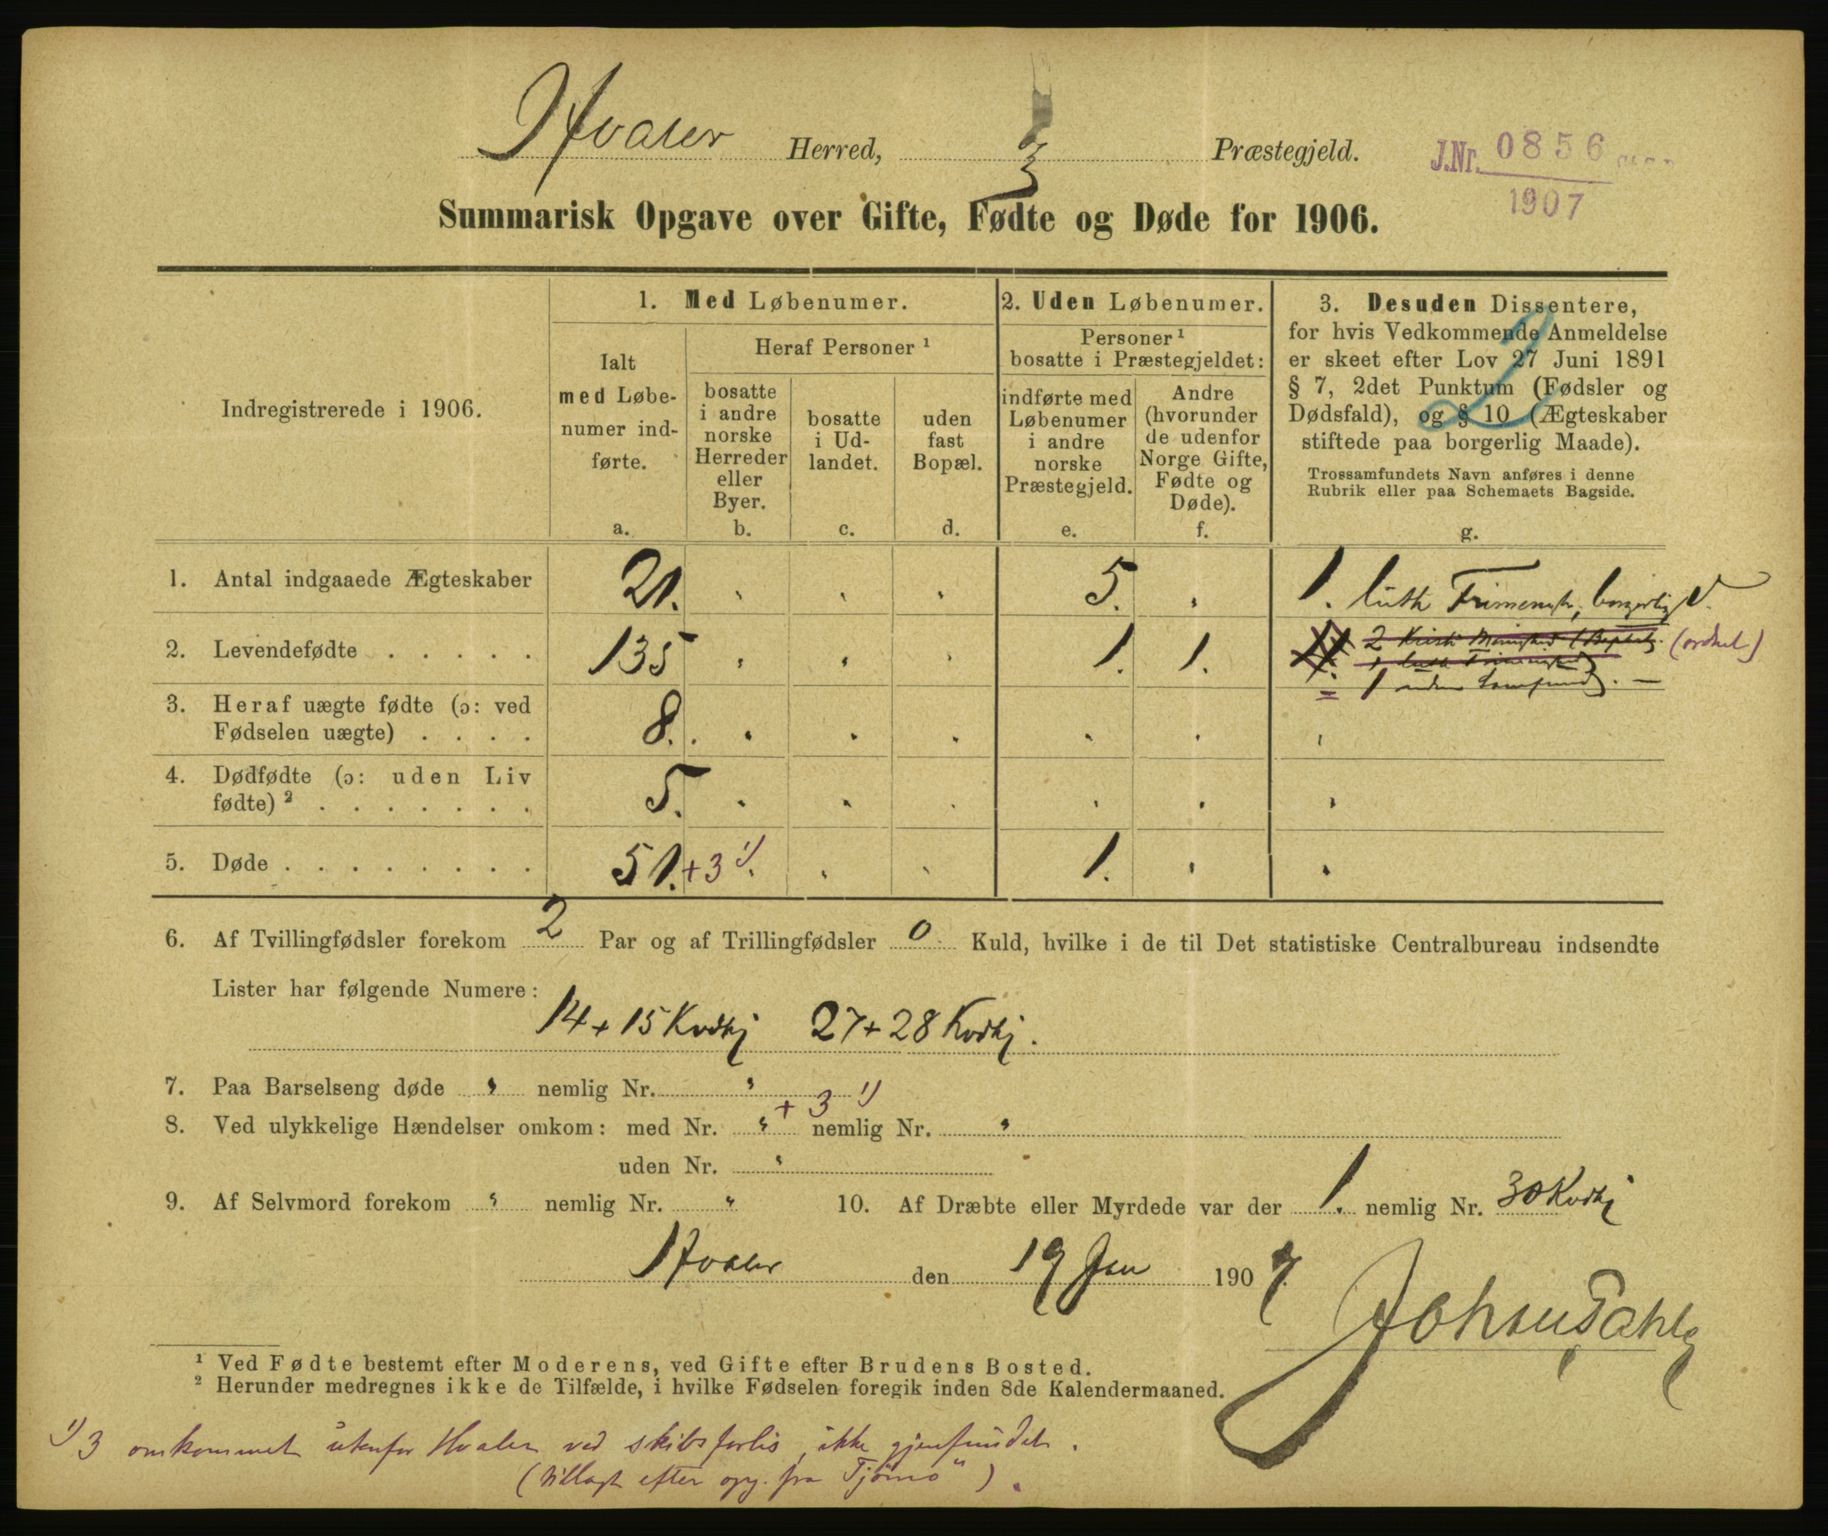 Hvaler Herred, Præstegjeld.
J.Nr. 0856
1907
Summarisk Opgave over Gifte, Fødte og Døde for 1906.
Indregistrerede i 1906.
1. Med Løbenumer.
Ialt med Løbenumer indførte.
a.
Heraf Personer ¹
bosatte i andre norske Herreder eller Byer.
b.
bosatte i Udlandet.
c.
uden fast Bopæl.
d.
2. Uden Løbenumer.
Personer ¹
bosatte i Præstegjeldet:
indførte med Løbenumer i andre norske Præstegjeld.
e.
Andre (hvorunder de udenfor Norge Gifte, Fødte og Døde).
f.
3. Desuden Dissentere,
for hvis Vedkommende Anmeldelse
er skeet efter Lov 27 Juni 1891
§ 7, 2det Punktum (Fødsler og
Dødsfald), og § 10 (Ægteskaber
stiftede paa borgerlig Maade).
Trossamfundets Navn anføres i denne
Rubrik eller paa Schemaets Bagside.
g.
2
1. Antal indgaaede Ægteskaber 21. 5. 1. luth Frimenigh, borgerlig V.
2. Levendefødte . . . . . 135 1. 1. (ordnet)
1 uden Samfund. —
3. Heraf uægte fødte (ɔ: ved
Fødselen uægte) . . . . 8.
4. Dødfødte (ɔ: uden Liv
fødte) ² . . . . . . . 5.
5. Døde . . . . . . . . 51. +3 ¹) 1.
6. Af Tvillingfødsler forekom 2 Par og af Trillingfødsler 0 Kuld, hvilke i de til Det statistiske Centralbureau indsendte
Lister har følgende Numere:
14 + 15 Kvdkj 27 + 28 Kvdkj.
7. Paa Barselseng døde " nemlig Nr. "
+ 3 ¹)
8. Ved ulykkelige Hændelser omkom: med Nr. " nemlig Nr. "
uden Nr. "
9. Af Selvmord forekom " nemlig Nr. " 10. Af Dræbte eller Myrdede var der 1. nemlig Nr. 30 Kvdkj
Hvaler den 19 Jan 1907.
Johan Dahl
¹ Ved Fødte bestemt efter Moderens, ved Gifte efter Brudens Bosted.
² Herunder medregnes ikke de Tilfælde, i hvilke Fødselen foregik inden 8de Kalendermaaned.
¹) 3 omkommet utenfor Hvaler ved skibsforlis, ikke gjenfundet.
(tillagt efter opg. fra Tjømø").